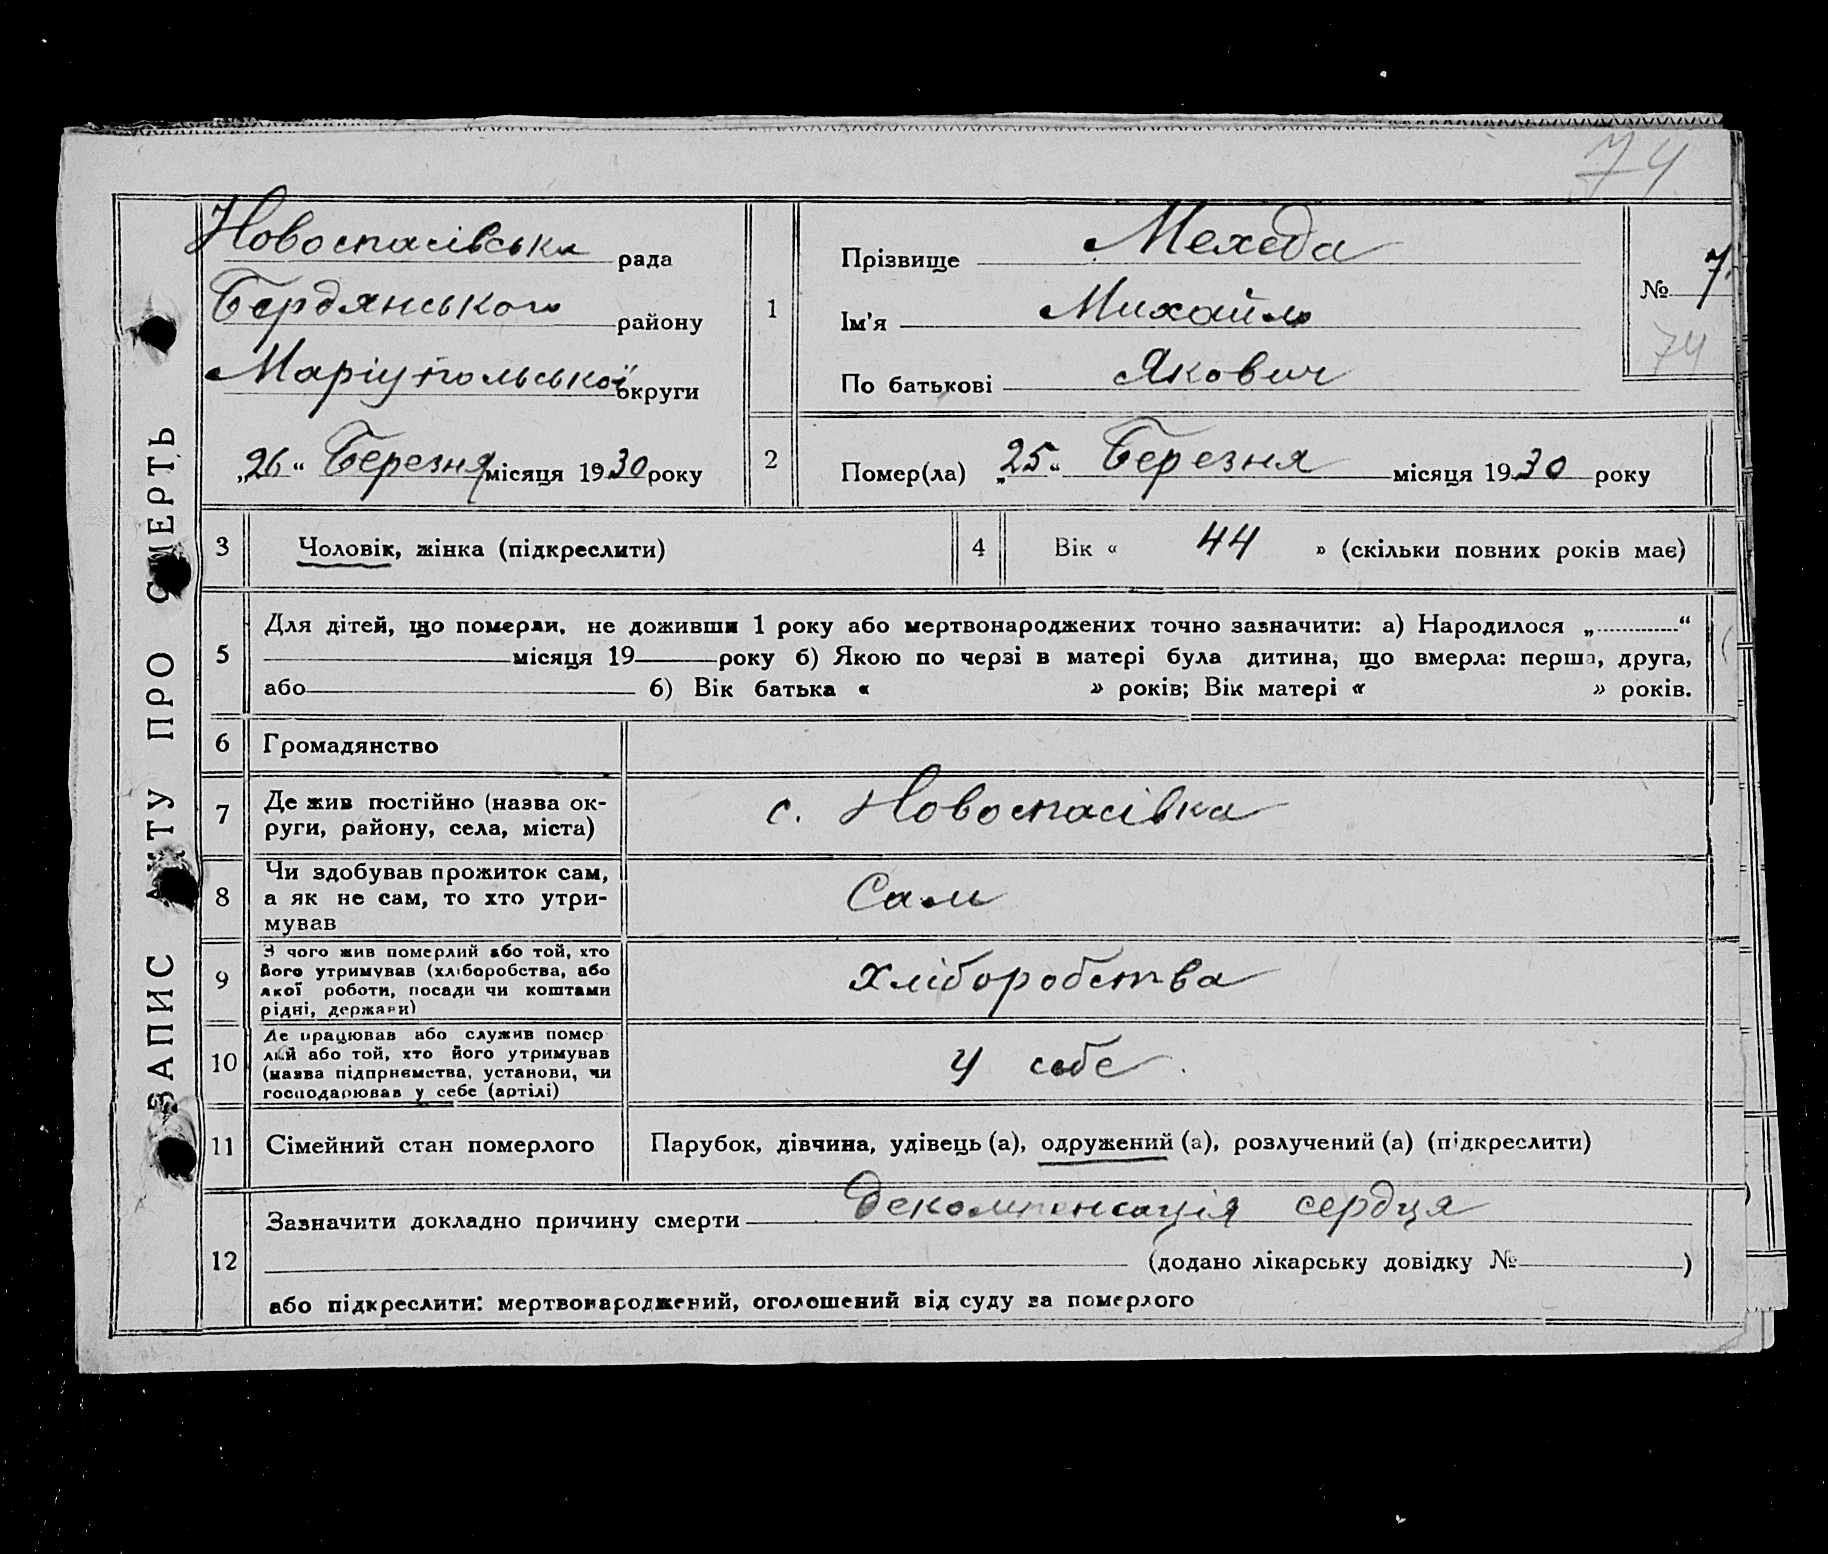 74
ЗАПИС АКТУ ПРО СМЕРТЬ
Новоспасівська рада
Бердянського району
Маріупольської округи
„26“ Березня місяця 1930 року
1
Прізвище Мехеда
Ім'я Михайло
По батькові Якович
№ 7
74
2
Помер(ла) „25“ Березня місяця 1930 року
3
Чоловік, жінка (підкреслити)
4
Вік « 44 » (скільки повних років має)
5
Для дітей, що померли, не доживши 1 року або мертвонароджених точно зазначити: а) Народилося „ “
місяця 19 року б) Якою по черзі в матері була дитина, що вмерла: перша, друга,
або б) Вік батька « » років; Вік матері « » років.
6
Громадянство
7
Де жив постійно (назва ок-
руги, району, села, міста)
с. Новоспасівка
8
Чи здобував прожиток сам,
а як не сам, то хто утри-
мував
Сам
9
З чого жив померлий або той, хто
його утримував (хліборобства, або
якої роботи, посади чи коштами
рідні, держави)
Хліборобства
10
Де працював або служив помер
лий або той, хто його утримував
(назва підприємства, установи, чи
господарював у себе (артілі)
У себе
11
Сімейний стан померлого
Парубок, дівчина, удівець (а), одружений (а), розлучений (а) (підкреслити)
12
Зазначити докладно причину смерти Декомпенсація сердця
(додано лікарську довідку № )
або підкреслити: мертвонароджений, оголошений від суду за померлого